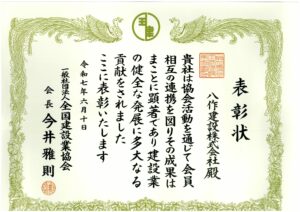 表彰状
八作建設株式会社殿
貴社は協会活動を通じて会員
相互の連携を図りその成果は
まことに顕著であり建設業
の健全な発展に多大なる
貢献をされました
ここに表彰いたします
令和七年六月十日
一般社団法人全国建設業協会
会長 今井雅則